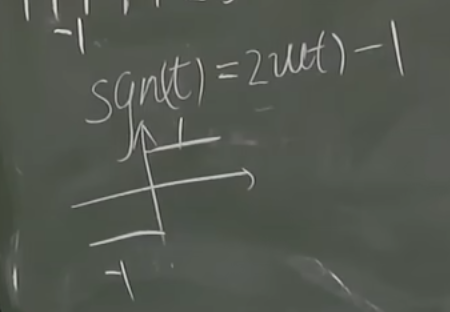 -1
sgn(t) = 2u(t) - 1
1
-1